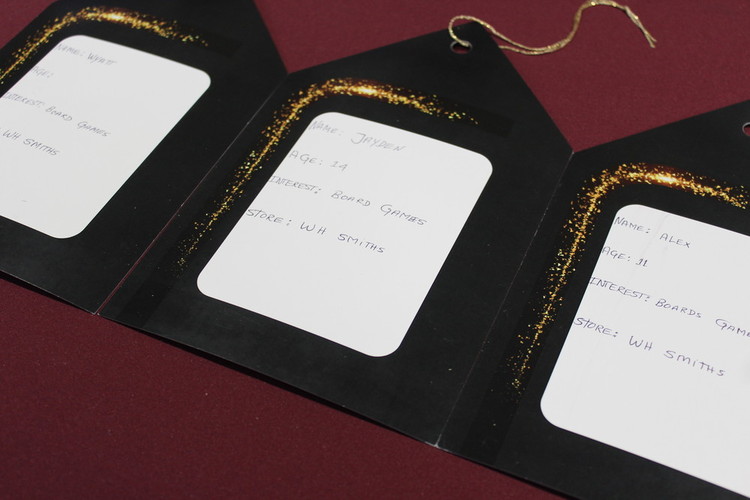 NAME: WYATT
AGE:
INTEREST: BOARD GAMES
WH SMITHS
NAME: JAYDEN
AGE: 14
INTEREST: BOARD GAMES
STORE: WH SMITHS
NAME: ALEX
AGE: 11
INTEREST: BOARDS GAME
STORE: WH SMITHS